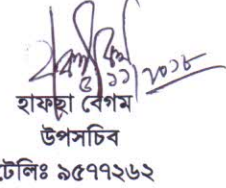 ৫.১১.২০১৮
হাফছা বেগম
উপসচিব
টেলিঃ ৯৫৭৭২৬২